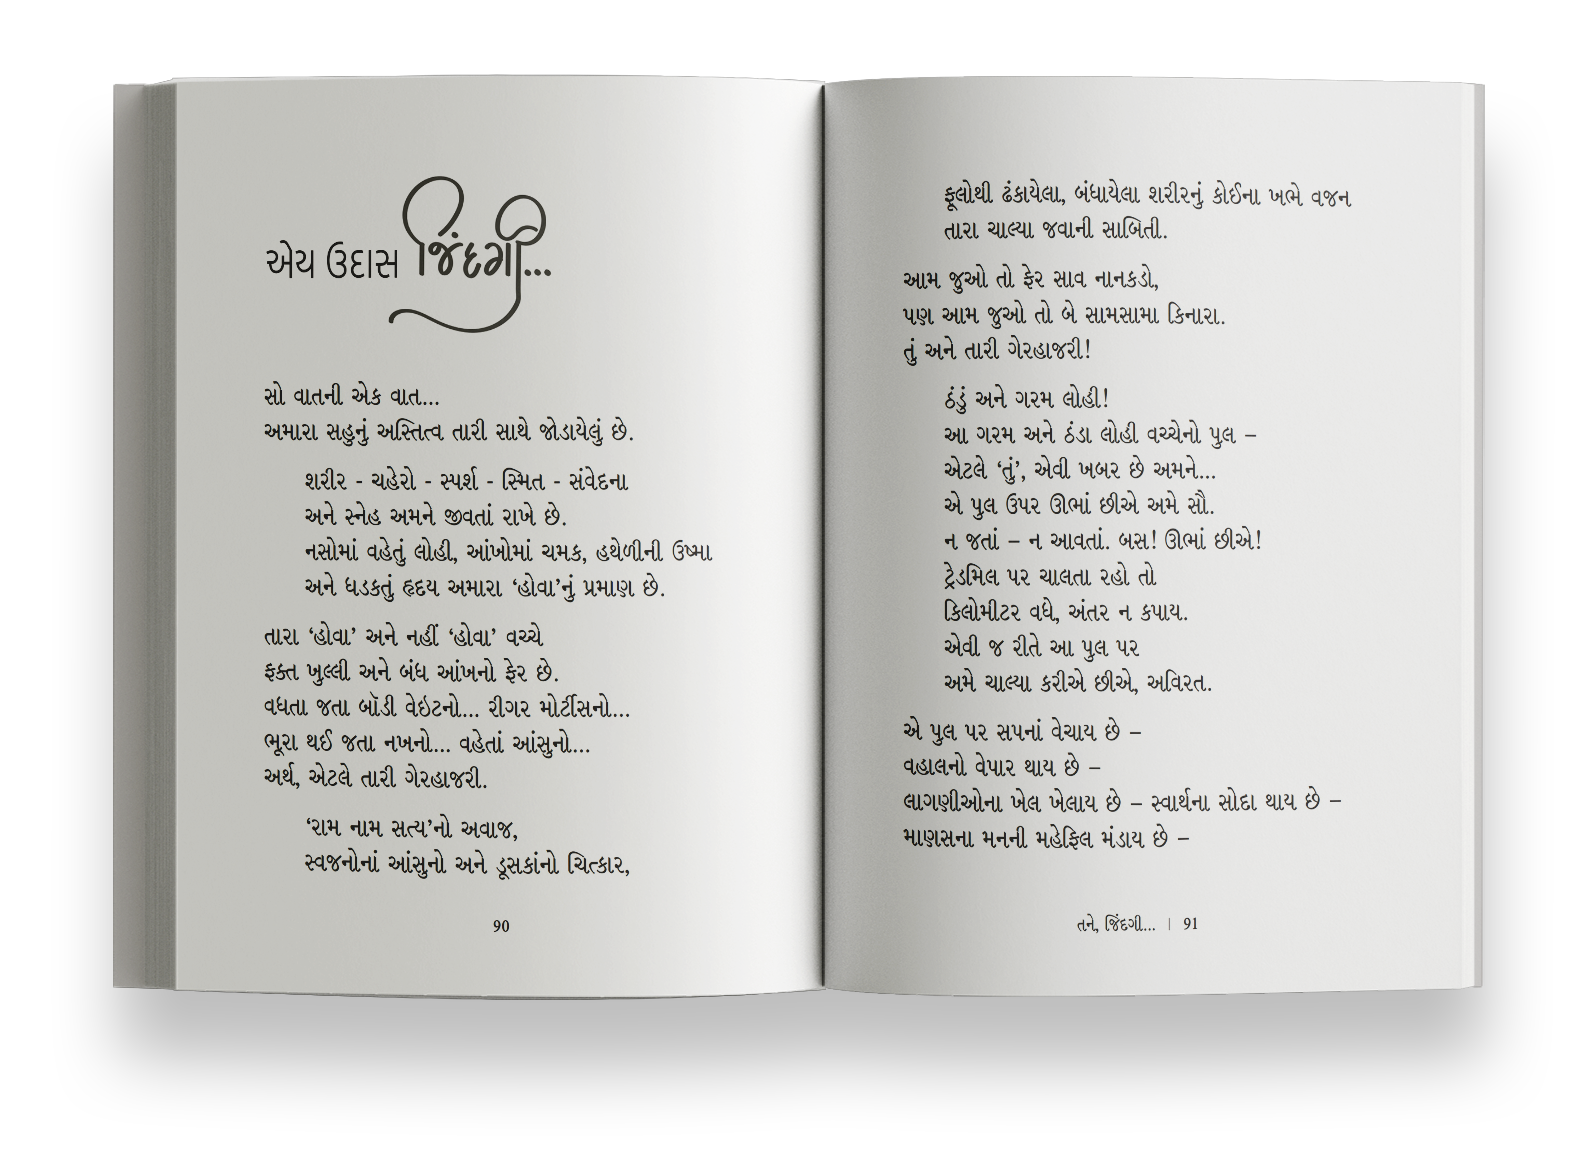 એય ઉદાસ જિંદગી...
સો વાતની એક વાત...
અમારા સહુનું અસ્તિત્વ તારી સાથે જોડાયેલું છે.
શરીર - ચહેરો - સ્પર્શ - સ્મિત - સંવેદના
અને સ્નેહ અમને જીવતાં રાખે છે.
નસોમાં વહેતું લોહી, આંખોમાં ચમક, હથેળીની ઉષ્મા
અને ધડકતું હૃદય અમારા ‘હોવા’નું પ્રમાણ છે.
તારા ‘હોવા’ અને નહીં ‘હોવા’ વચ્ચે
ફક્ત ખુલ્લી અને બંધ આંખનો ફેર છે.
વધતા જતા બૉડી વેઇટનો... રીગર મોર્ટીસનો...
ભૂરા થઈ જતા નખનો... વહેતાં આંસુનો...
અર્થ, એટલે તારી ગેરહાજરી.
‘રામ નામ સત્ય’નો અવાજ,
સ્વજનોનાં આંસુનો અને ડૂસકાંનો ચિત્કાર,
90
ફૂલોથી ઢંકાયેલા, બંધાયેલા શરીરનું કોઈના ખભે વજન
તારા ચાલ્યા જવાની સાબિતી.
આમ જુઓ તો ફેર સાવ નાનકડો,
પણ આમ જુઓ તો બે સામસામા કિનારા.
તું અને તારી ગેરહાજરી!
ઠંડું અને ગરમ લોહી!
આ ગરમ અને ઠંડા લોહી વચ્ચેનો પુલ –
એટલે ‘તું’, એવી ખબર છે અમને...
એ પુલ ઉપર ઊભાં છીએ અમે સૌ.
ન જતાં – ન આવતાં. બસ! ઊભાં છીએ!
ટ્રેડમિલ પર ચાલતા રહો તો
કિલોમીટર વધે, અંતર ન કપાય.
એવી જ રીતે આ પુલ પર
અમે ચાલ્યા કરીએ છીએ, અવિરત.
એ પુલ પર સપનાં વેચાય છે –
વહાલનો વેપાર થાય છે –
લાગણીઓના ખેલ ખેલાય છે – સ્વાર્થના સોદા થાય છે –
માણસના મનની મહેફિલ મંડાય છે –
તને, જિંદગી... | 91